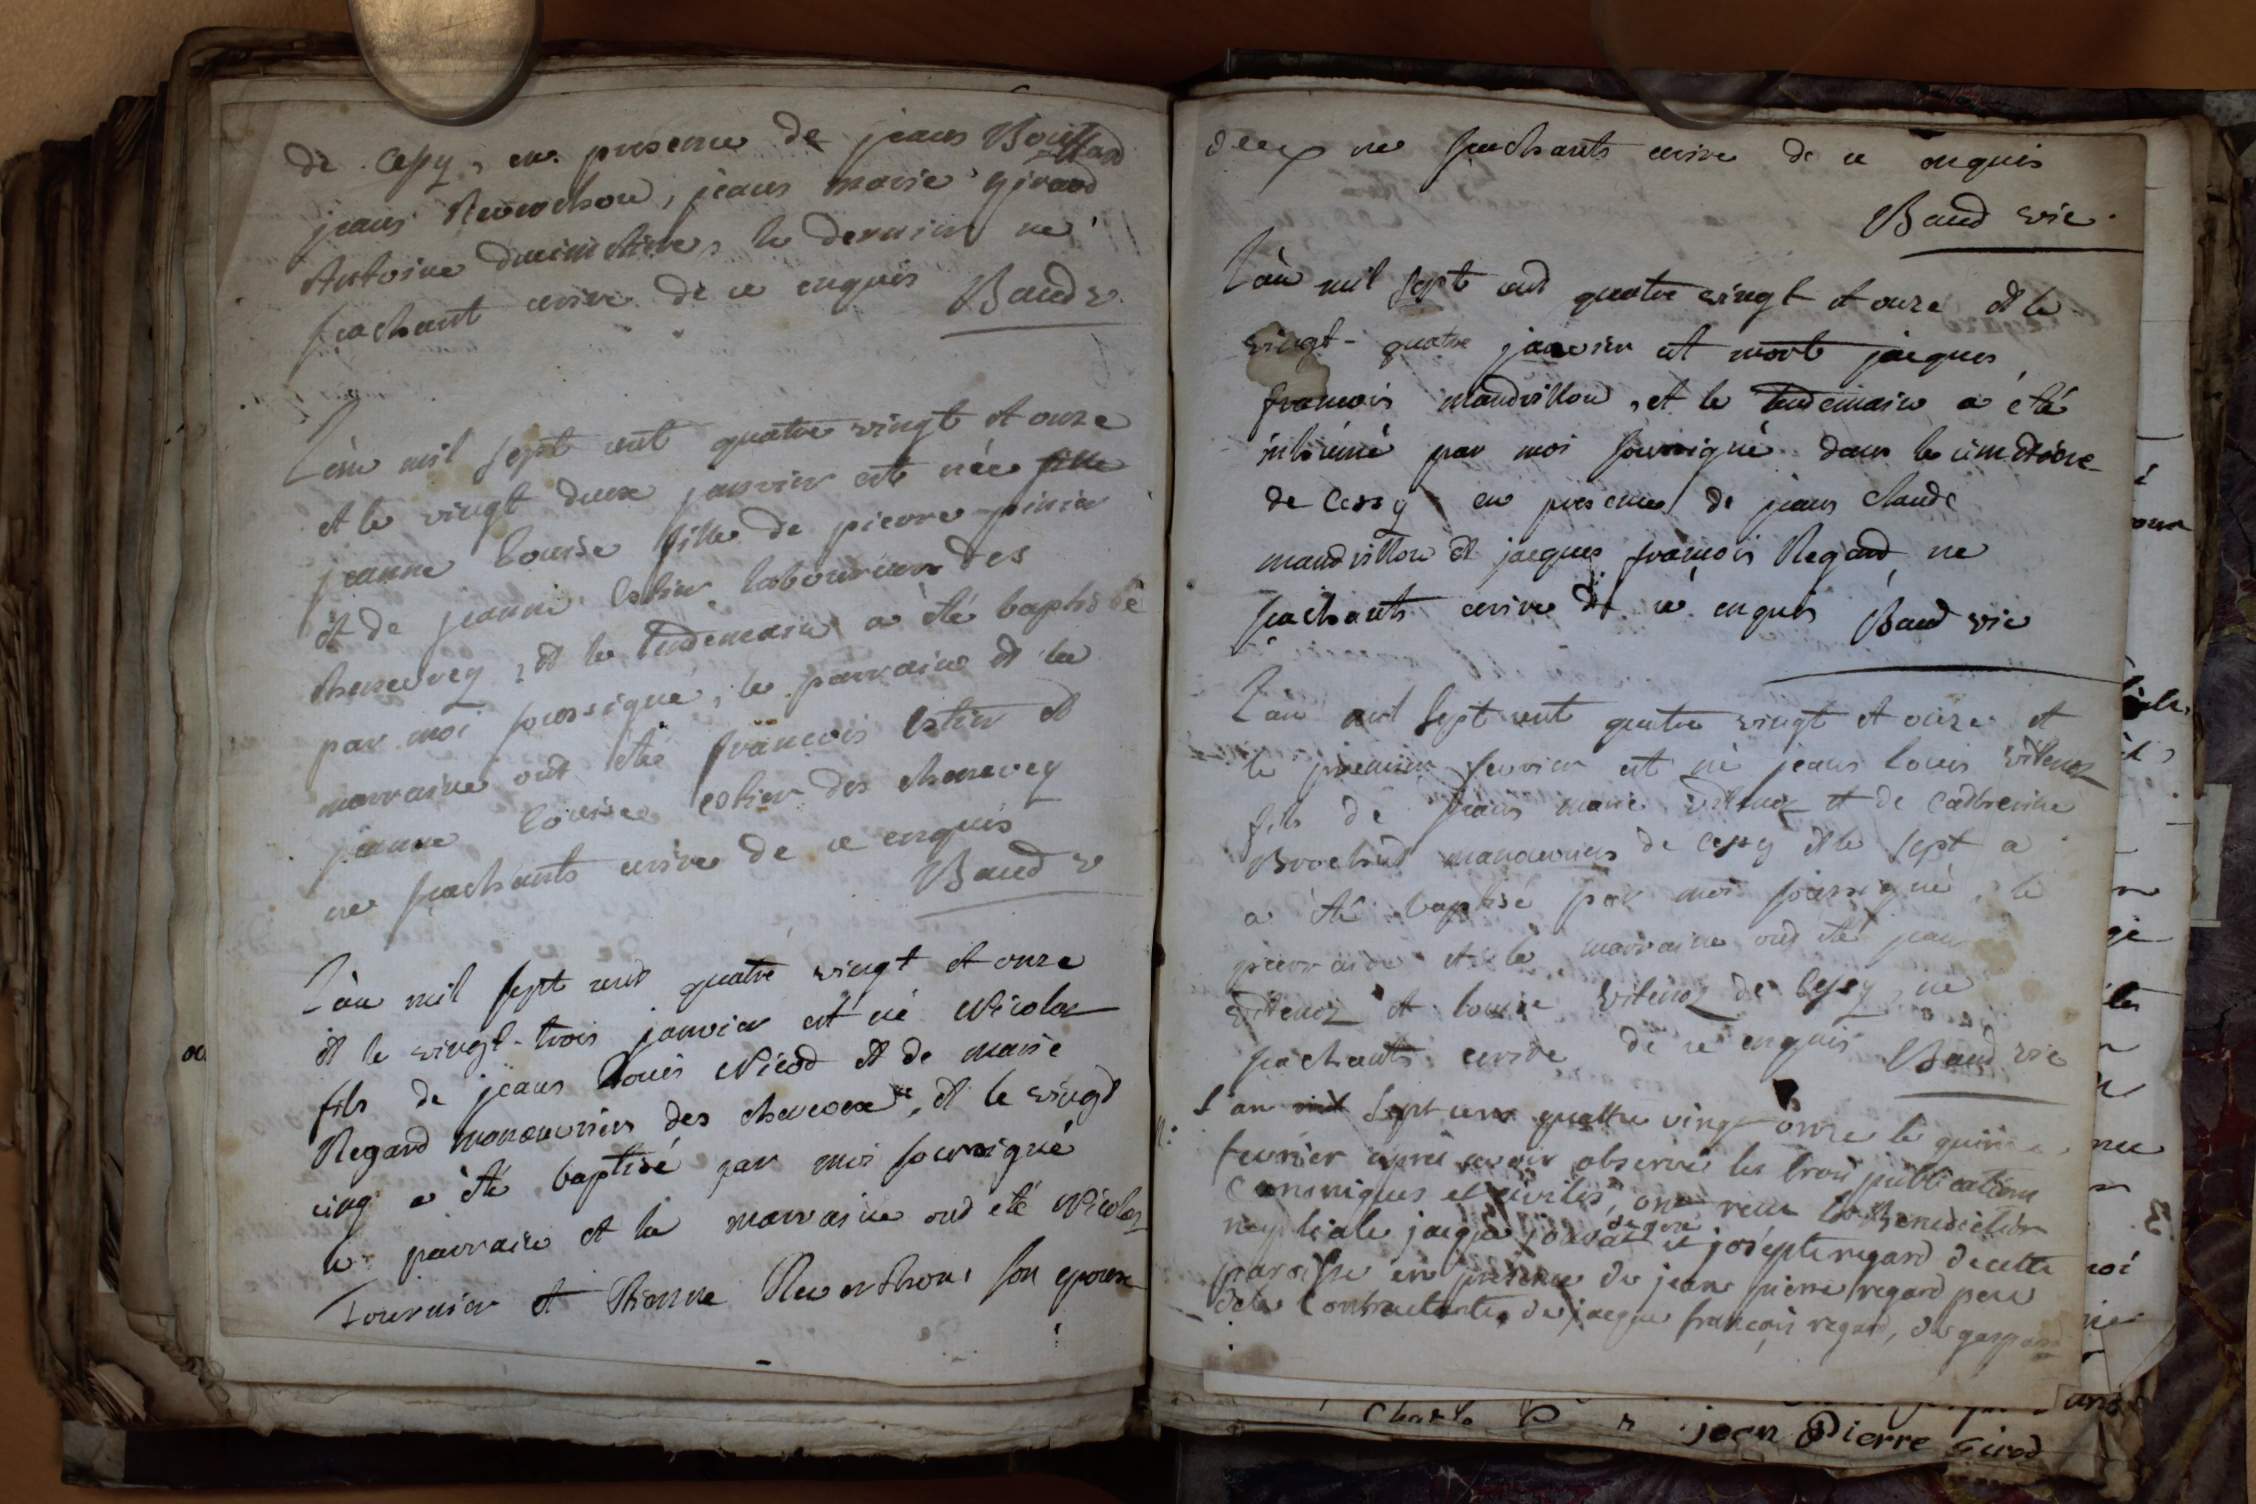 de Cessy, en presence de jean Bouillard
jean Reverchon, jean marie girard
Antoine ducimetiere, le dernier ne
scachant ecrire de ce enquis Baud v.
L'an mil sept cent quatre vingt et onze
et le vingt deux janvier est née fille
jeanne Louise fille de pierre
et de jeanne Estier laboureurs des
chenevey, et le lendemain a été baptisée
par moi soussigné, le parrain et la
marraine ont été francois Estier et
jeanne Louise estier des chenevey
ne scachants ecrire de ce enquis
Baud v
L'an mil sept cent quatre vingt et onze
et le vingt-trois janvier est né Nicolas
fils de jean Louis Nicod et de marie
Regard manouvriers des, et le vingt
cinq a été baptisé par moi soussigné
le parrain et la marraine ont été Nicolas
Tournier et Etienne Reverchon, son epouse
deux ne scachants ecrire de ce enquis
Baud vic.
L'an mil sept cent quatre vingt et onze et le
vingt-quatre janvier est mort jacques
francois mandrillon, et le lendemain a été
inhumé par moi soussigné dans le cimetière
de Cessy en presence de jean claude
mandrillon et jacques françois Regard ne
scachants ecrire de ce enquis Baud vic
L'an mil sept cent quatre vingt et onze et
le premier fevrier est né jean Louis vitenoz
fils de jean marie vitenoz et de catherine
Brochud manouvriers de Cessy et le sept a
a été baptisé par moi soussigné, le
parrain et la marraine ont été jean
vitenoz et Louise vitenoz de Cessy, ne
scachants ecrire de ce enquis Baud vic
L'an mil sept cent quattre vingt onze le
fevrier après avoir observé les trois publications
canoniques et civiles, ont recu la benediction
nuptiale jacque de gex et josepte regard de cette
paroisse en presence de jean pierre regard pere
de la Contractante, de jacque françois regard, de gaspard
jean Pierre Girod